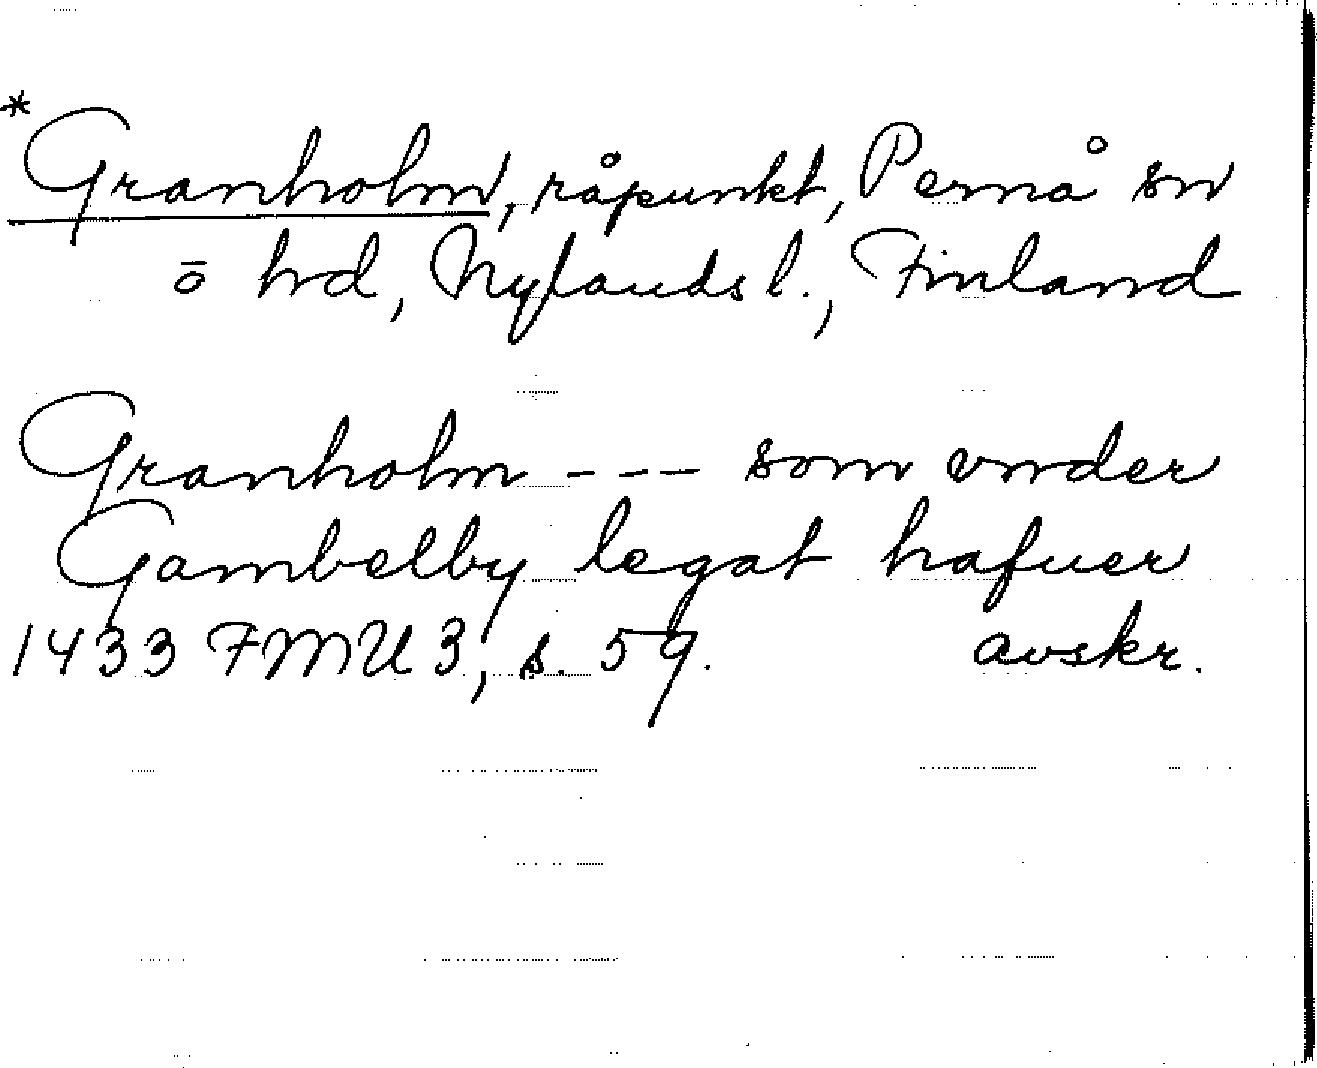 *
Granholm, råpunkt, Pernå sn
ō hd, Nylands l., Finland
Granholm --- som vnder
Gambelby legat hafuer
1433 FMU 3, s. 59. avskr.